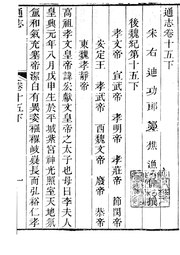 通志卷十五下
宋右迪功郎鄭樵漁仲撰
後魏紀第十五下
孝文帝 宣武帝 孝明帝 孝莊帝 節閔帝
安定王 孝武帝 西魏文帝 廢帝 恭帝
東魏孝靜帝
高祖孝文皇帝諱宏獻文皇帝之太子也母曰李夫人
皇興元年八月戊申生於平城紫宮神光照室天地氛
氳和氣充塞帝潔白有異姿襁褓岐嶷長而弘裕仁孝
通志 卷十五下 一